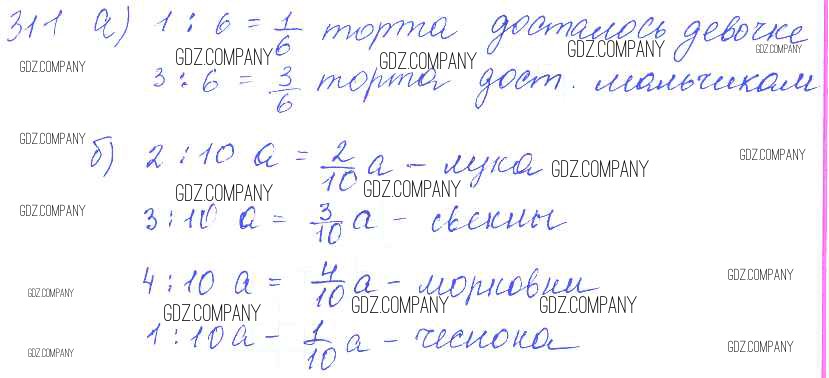 311 а) 1 : 6 = 1/6 торта досталось девочке
GDZ.COMPANY GDZ.COMPANY GDZ.COMPANY GDZ.COMPANY GDZ.COMPANY
3 : 6 = 3/6 торта дост. мальчикам
GDZ.COMPANY
б) 2 : 10 а = 2/10 а - лука GDZ.COMPANY GDZ.COMPANY
GDZ.COMPANY GDZ.COMPANY
GDZ.COMPANY 3 : 10 а = 3/10 а - свеклы
4 : 10 а = 4/10 а - моркови GDZ.COMPANY
GDZ.COMPANY
GDZ.COMPANY GDZ.COMPANY GDZ.COMPANY
1 : 10 а - 1/10 а - чеснока GDZ.COMPANY
GDZ.COMPANY